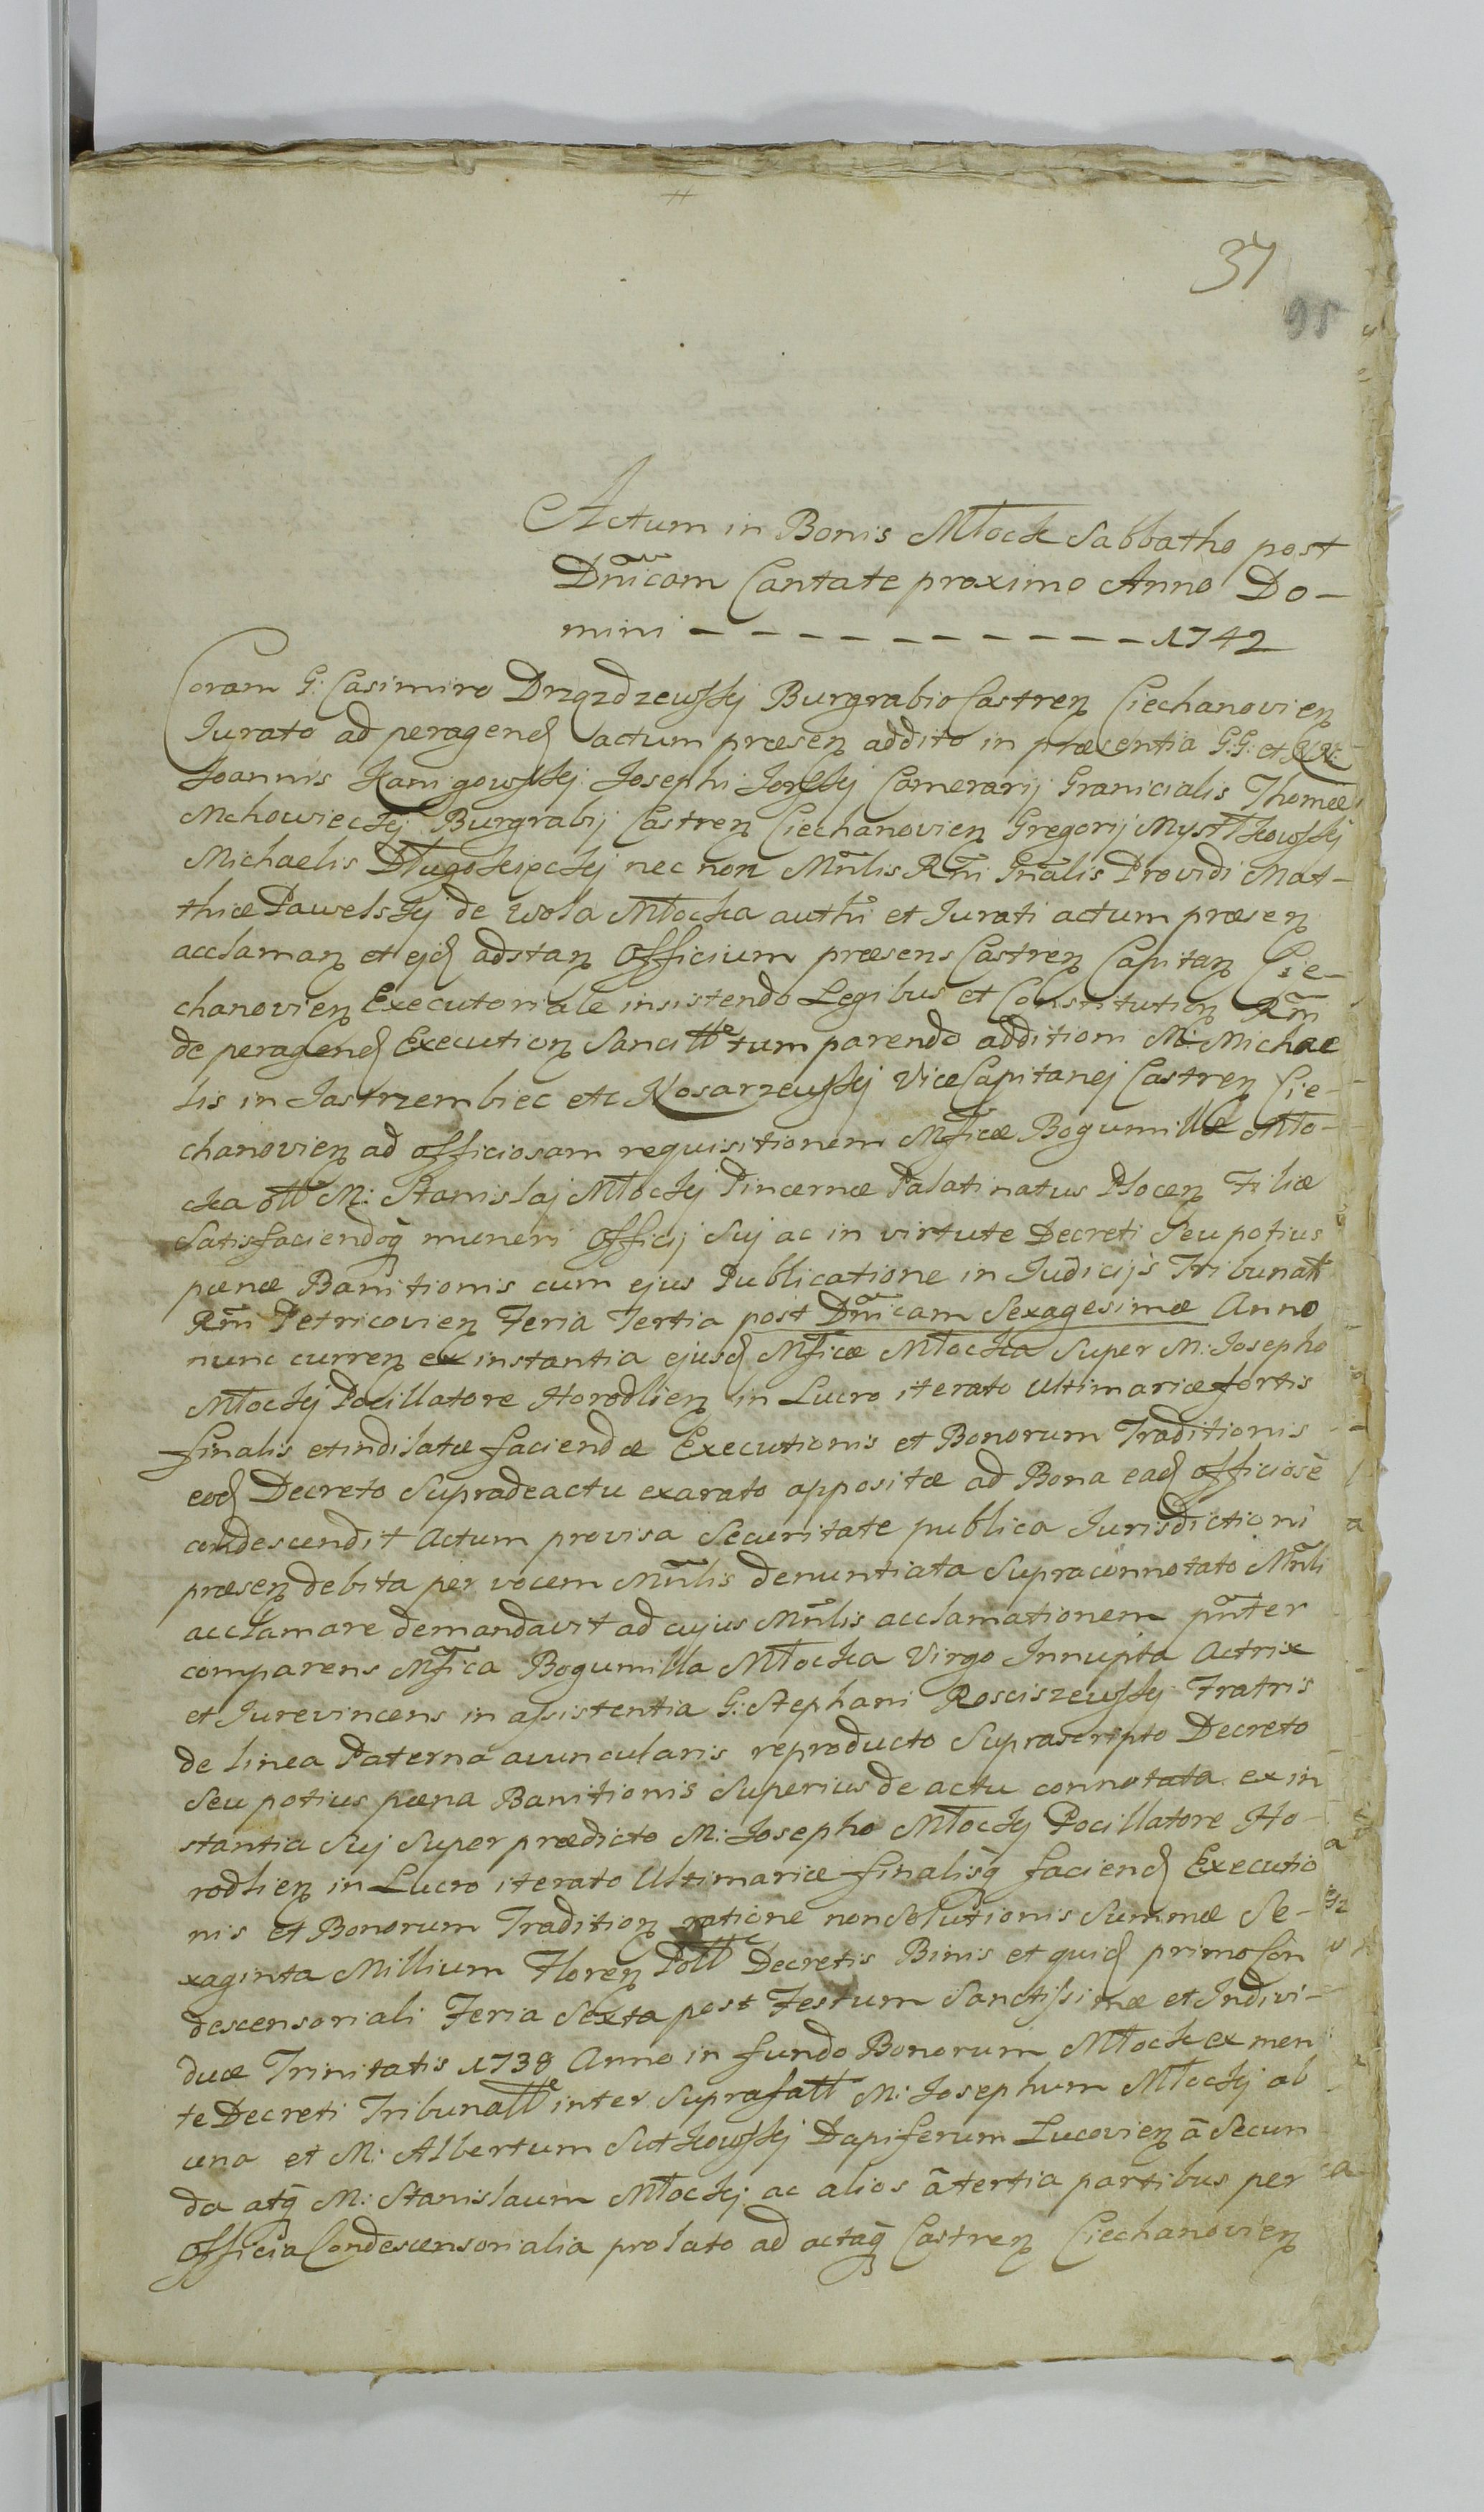 37
95
Actum in Bonis Młock Sabbatho post
Dnicam Cantate proximo Anno Do-
mini - - - - - - - - - - - 1742
Coram G: Casimiro Drzązdzewskj Burgrabio Castren Ciechanovien
Jurato ad peragend actum præsen addito in præsentia G:G: et
Joannis Kanigowskj Josephi Jorskj Camerarij Granicialis Thomæ
Mchowieckj Burgrabij Castren Ciechanovien Gregorij Mystkowskj
Michaelis Długokęckj nec non Mnlis Rni Gnalis Providi Mat-
thiæ Pawelskj de Wola Młocka authi et Jurati actum præsen
acclaman et ejd adstan Officium præsens Castren Capitan Cie-
chanovien Executoriale insistendo Legibus et Constitution Rni
de peragend Execution Sancitt tum parendo additioni M: Michae
lis in Jastrzembiec etc Kosarzewskj Vice Capitanej Castren Cie-
chanovien ad officiosam requisitionem Mficæ Bogumillæ Mło-
cka ott M: Stanislaj Młockj Pincernæ Palatinatus Plocen Filiæ
Satisfaciendoq muneri Officij Suj ac in virtute Decreti Seu potius
pænæ Banitionis cum ejus Publicatione in Judicijs Tribunalt
Rni Petricovien Feria Tertia post Dnicam Sexagesimæ Anno
nunc curren ex instantia ejusd Mficæ Młocka Super M: Josepho
Młockj Pocillatore Horodlien in Lucro iterato Ultimariæ fortis
finalis et indilatæ faciendæ Executionis et Bonorum Traditionis
eod Decreto Supradeactu exarato appositæ ad Bona ead officiosè
condescendit Actum provisa Securitate publica Jurisdictioni
præsen debita per vocem Mnlis denuntiata Supraconnotato Mnli
acclamare demandavit ad cujus Mnlis acclamationem pnter
comparens Mfica Bogumilla Młocka Virgo Innupta Actrix
et Jurevincens in assistentia G: Stephani Rosciszewskj Fratris
de linea Paterna avuncularis reproducto Suprascripto Decreto
Seu potius pæna Banitionis Superius de actu connotata ex in
stantia Suj Super prædicto M: Josepho Młockj Pocillatore Ho-
rodlien in Lucro iterato Ultimariæ finalisq faciend Executio
nis et Bonorum Tradition ratione non Solutionis Summæ Se-
xaginta Millium Floren Poll Decretis Binis et quid primo Con
descensoriali Feria Sexta post Festum Sanctissimæ et Indivi-
duæ Trinitatis 1738 Anno in fundo Bonorum Młock ex men
te Decreti Tribunall inter Suprafatt M: Josephum Młockj ab
una et M: Albertum Sutkowskj Dapiferum Lucovien a Secun
da atq M: Stanislaum Młockj ac alios a tertia partibus per
Officia Condescensorialia prolato ad actaq Castren Ciechanovien